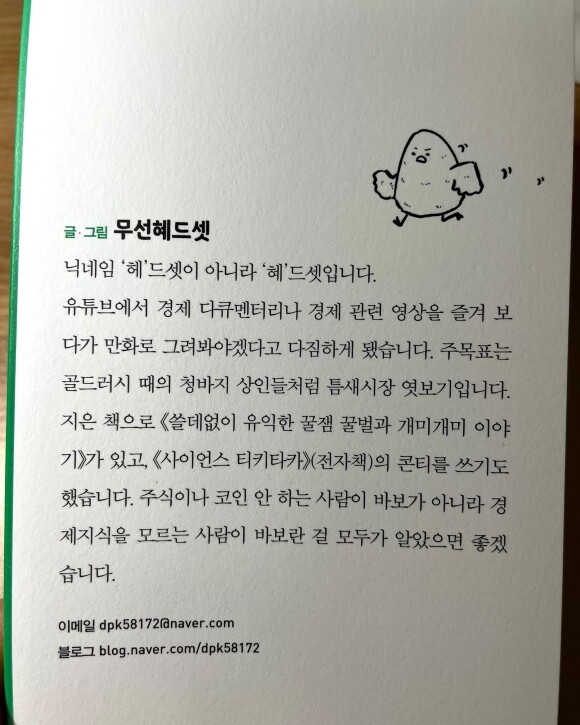 글·그림 무선혜드셋
닉네임 ‘헤’드셋이 아니라 ‘혜’드셋입니다.
유튜브에서 경제 다큐멘터리나 경제 관련 영상을 즐겨 보
다가 만화로 그려봐야겠다고 다짐하게 됐습니다. 주목표는
골드러시 때의 청바지 상인들처럼 틈새시장 엿보기입니다.
지은 책으로 《쓸데없이 유익한 꿀잼 꿀벌과 개미개미 이야
기》가 있고, 《사이언스 티키타카》(전자책)의 콘티를 쓰기도
했습니다. 주식이나 코인 안 하는 사람이 바보가 아니라 경
제지식을 모르는 사람이 바보란 걸 모두가 알았으면 좋겠
습니다.
이메일 dpk58172@naver.com
블로그 blog.naver.com/dpk58172